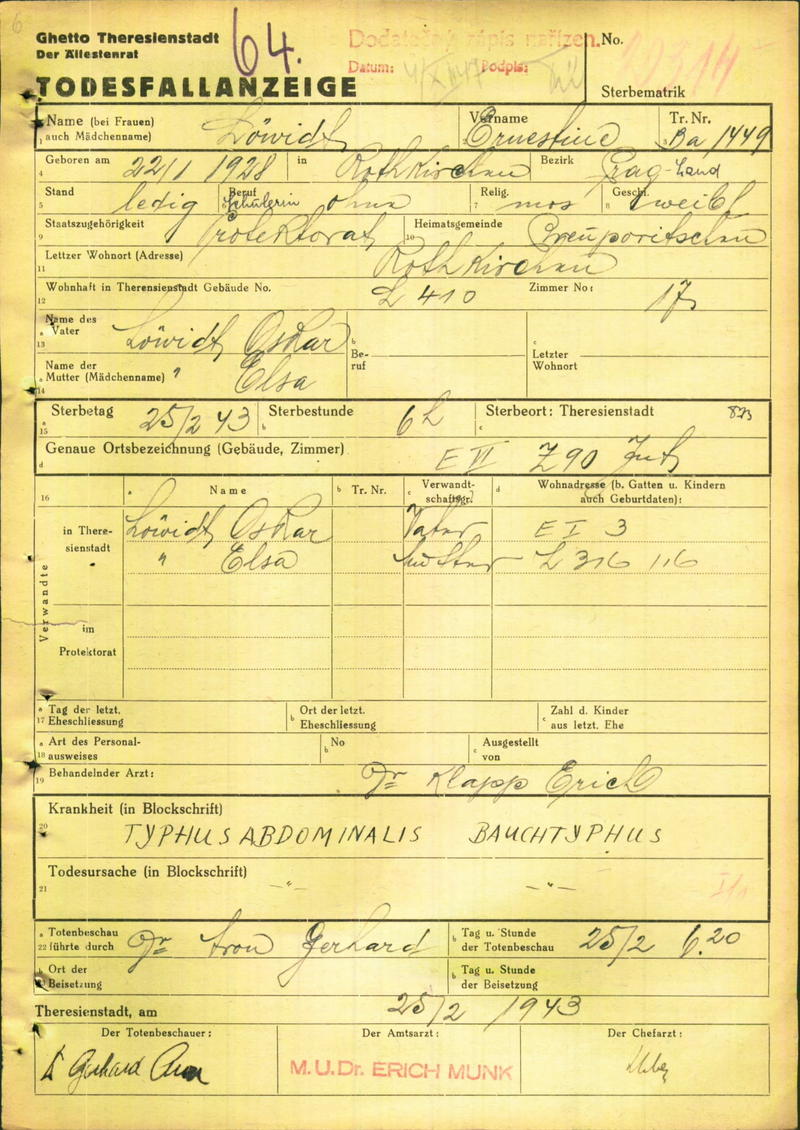 6
Ghetto Theresienstadt
Der Ältestenrat
64.
Dodatečný zápis nařízen.
Datum: Podpis:
No.
TODESFALLANZEIGE
Sterbematrik
Name (bei Frauen) auch Mädchenname) Löwidt Vorname Ernestine Tr. Nr. Ba 1449
4 Geboren am 22/1 1928 in Rothkirchen Bezirk Prag-Land
5 Stand ledig Beruf Schülerin ohne 7 Relig. mos 8 Geschl. weibl
9 Staatszugehörigkeit Protektorat 10 Heimatsgemeinde
11 Lettzer Wohnort (Adresse) Rothkirchen
12 Wohnhaft in Therensienstadt Gebäude No. L 410 Zimmer No: 17
13 a Name des Vater Löwidt Oskar b Beruf c Letzter Wohnort
14 a Name der Mutter (Mädchenname) " Elsa
15 a Sterbetag 25/2 43 b Sterbestunde 6 h c Sterbeort: Theresienstadt
d Genaue Ortsbezeichnung (Gebäude, Zimmer) E VI Z 90
16 a Name b Tr. Nr. c Verwandtschaftsgr. d Wohnadresse (b. Gatten u. Kindern auch Geburtdaten):
Verwandte
in Theresienstadt Löwidt Oskar Vater E I 3
" Elsa Mutter L 316 116
im Protektorat
17 a Tag der letzt. Eheschliessung b Ort der letzt. Eheschliessung c Zahl d. Kinder aus letzt. Ehe
18 a Art des Personalausweises b No c Ausgestellt von
19 Behandelnder Arzt: Dr Klapp Erich
20 Krankheit (in Blockschrift)
TYPHUS ABDOMINALIS BAUCHTYPHUS
21 Todesursache (in Blockschrift)
— " — — " —
22 a Totenbeschau führte durch Dr Aron Gerhard b Tag u. Stunde der Totenbeschau 25/2 6.20
a Ort der Beisetzung b Tag u. Stunde der Beisetzung
Theresienstadt, am 25/2 1943
Der Totenbeschauer: Der Amtsarzt: Der Chefarzt:
Gerhard Aron M.U.Dr. ERICH MUNK